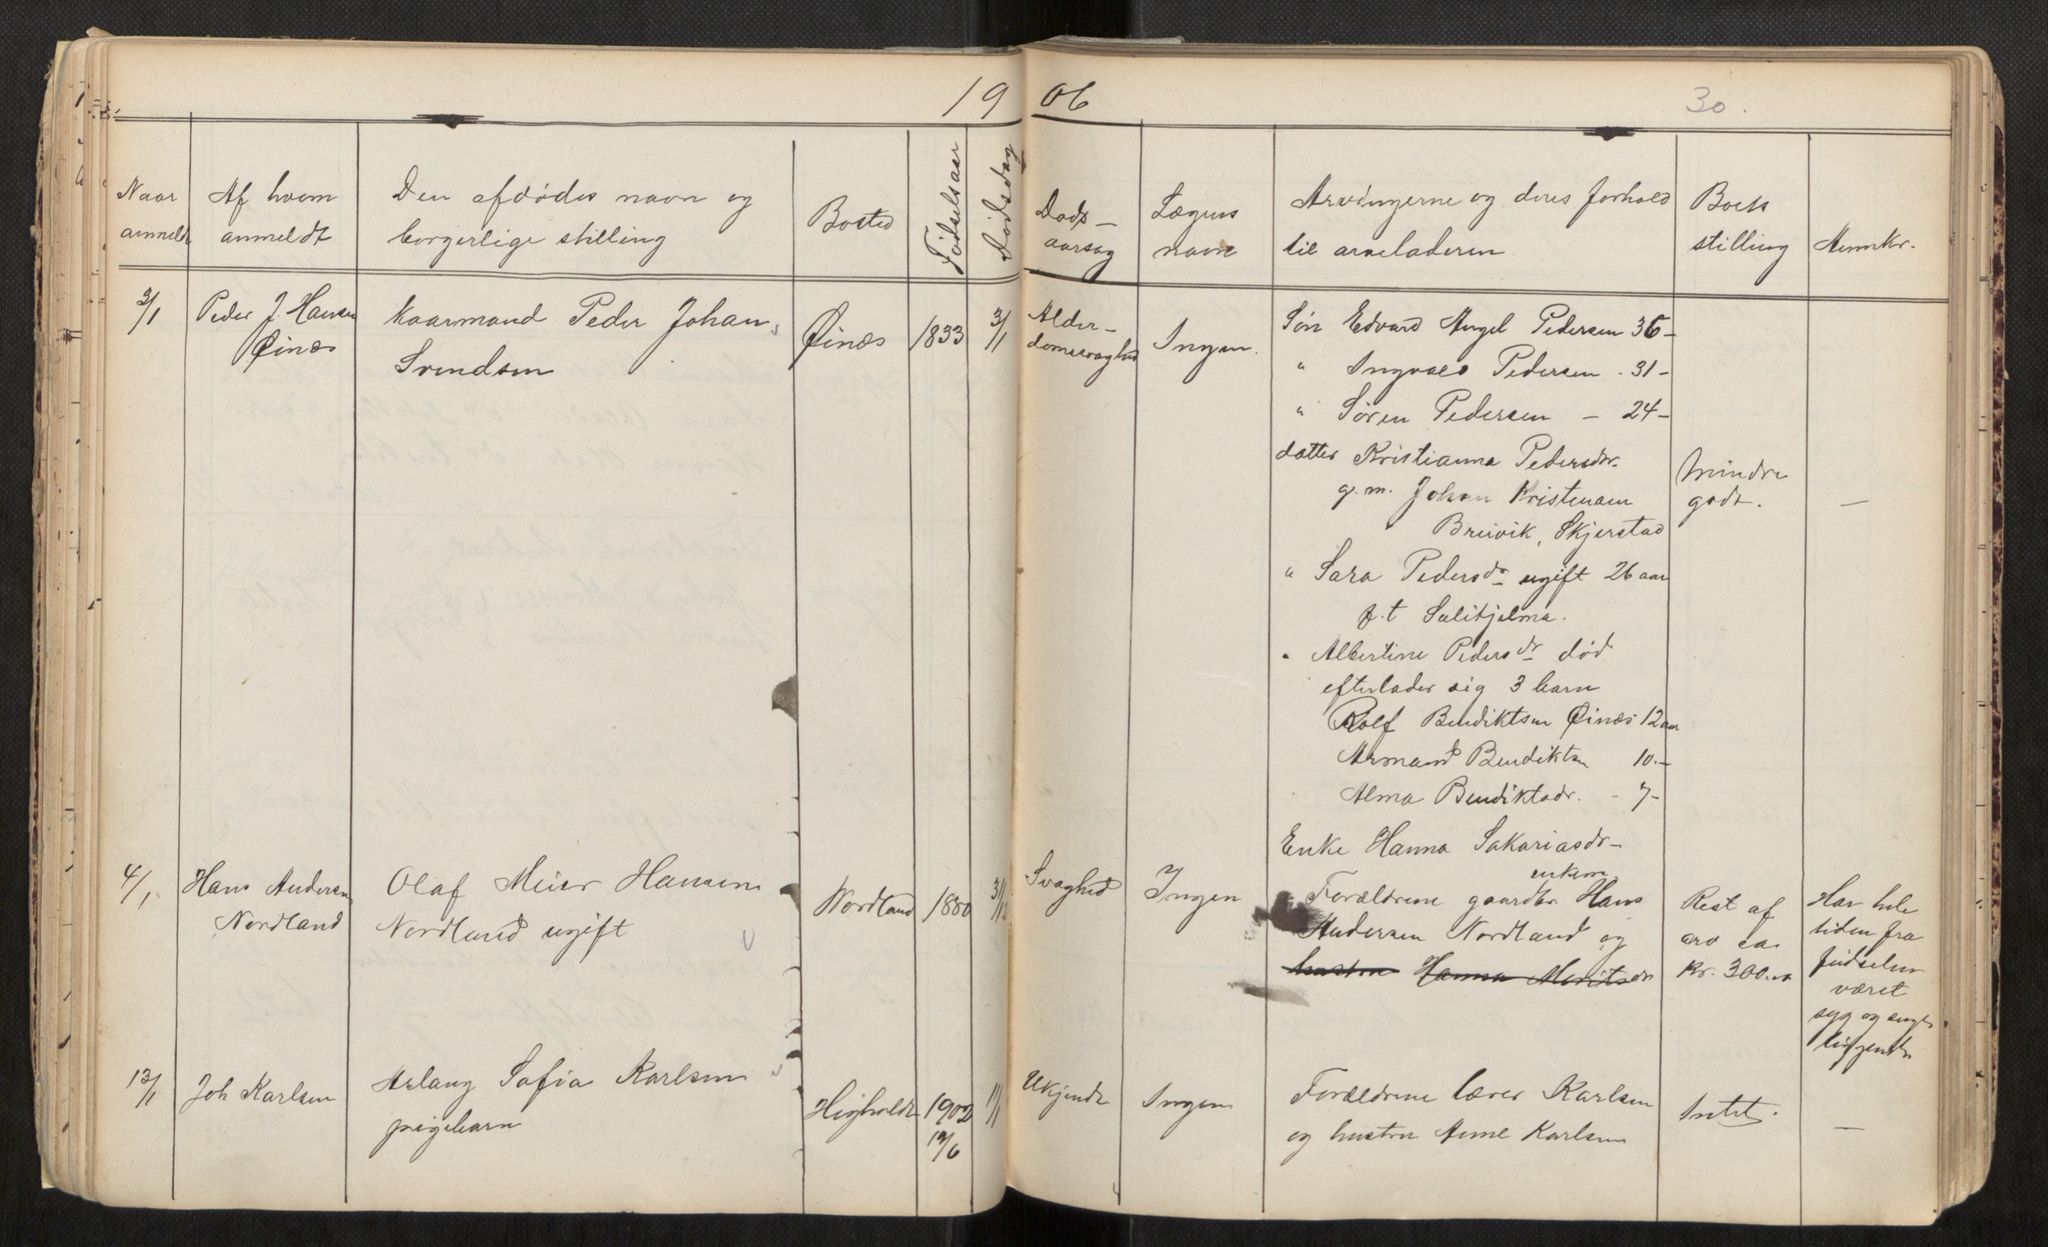 1906
30.
Naar anmeldt
Af hvem anmeldt
Den afdødes navn og borgerlige stilling
Bosted
Fødselsaar
Dødsdag
Døds-aarsag
Lægens navn
Arvingerne og deres forhold til arveladeren
Boets stilling
Anmkr.
3/1
Peder J. Hansen
Øinæs
Kaarmand Peder Johan
Svendsen
Øinæs
1833
3/1
Alder-
domssvaghed
Ingen.
Søn Edvard Angel Pedersen 36-
" Ingvald Pedersen - 31-
" Søren Pedersen - 24-
datter Kristianna Pedersdr.
g. m. Johan Kristensen
Breivik, Skjerstad
" Sara Pedersdr ugift 26 aar
p.t Sulitjelma.
" Albertine Pedersdr død
efterlader sig 3 barn
Rolf Bendiktsen Øinæs 12 aar
Armand Bendiktsn 10.-
Alma Bendiktsdr. - 7-
Enke Hanna Sakariasdr-
Mindre
godt.
-
4/1
Hans Andersen
Nordland
Olaf Meier Hansen
Nordland ugift
Nordland
1880
3/12
Svaghed
Ingen
enkem.
Forældrene gaardbr Hans
Andersen Nordland og
hustru Hanna Moritsdr
Rest af
arv ca.
Kr. 300.00
Har hele
tiden fra
fødselen
været
syg og senge
liggende
13/1
Joh Karlsen
Aslaug Sofia Karlsen
pigebarn
Høgholdt
1902
12/6
11/1
Ukjendt
Ingen
Forældrene lærer Karlsen
og hustru Anne Karlsen
Intet.
-